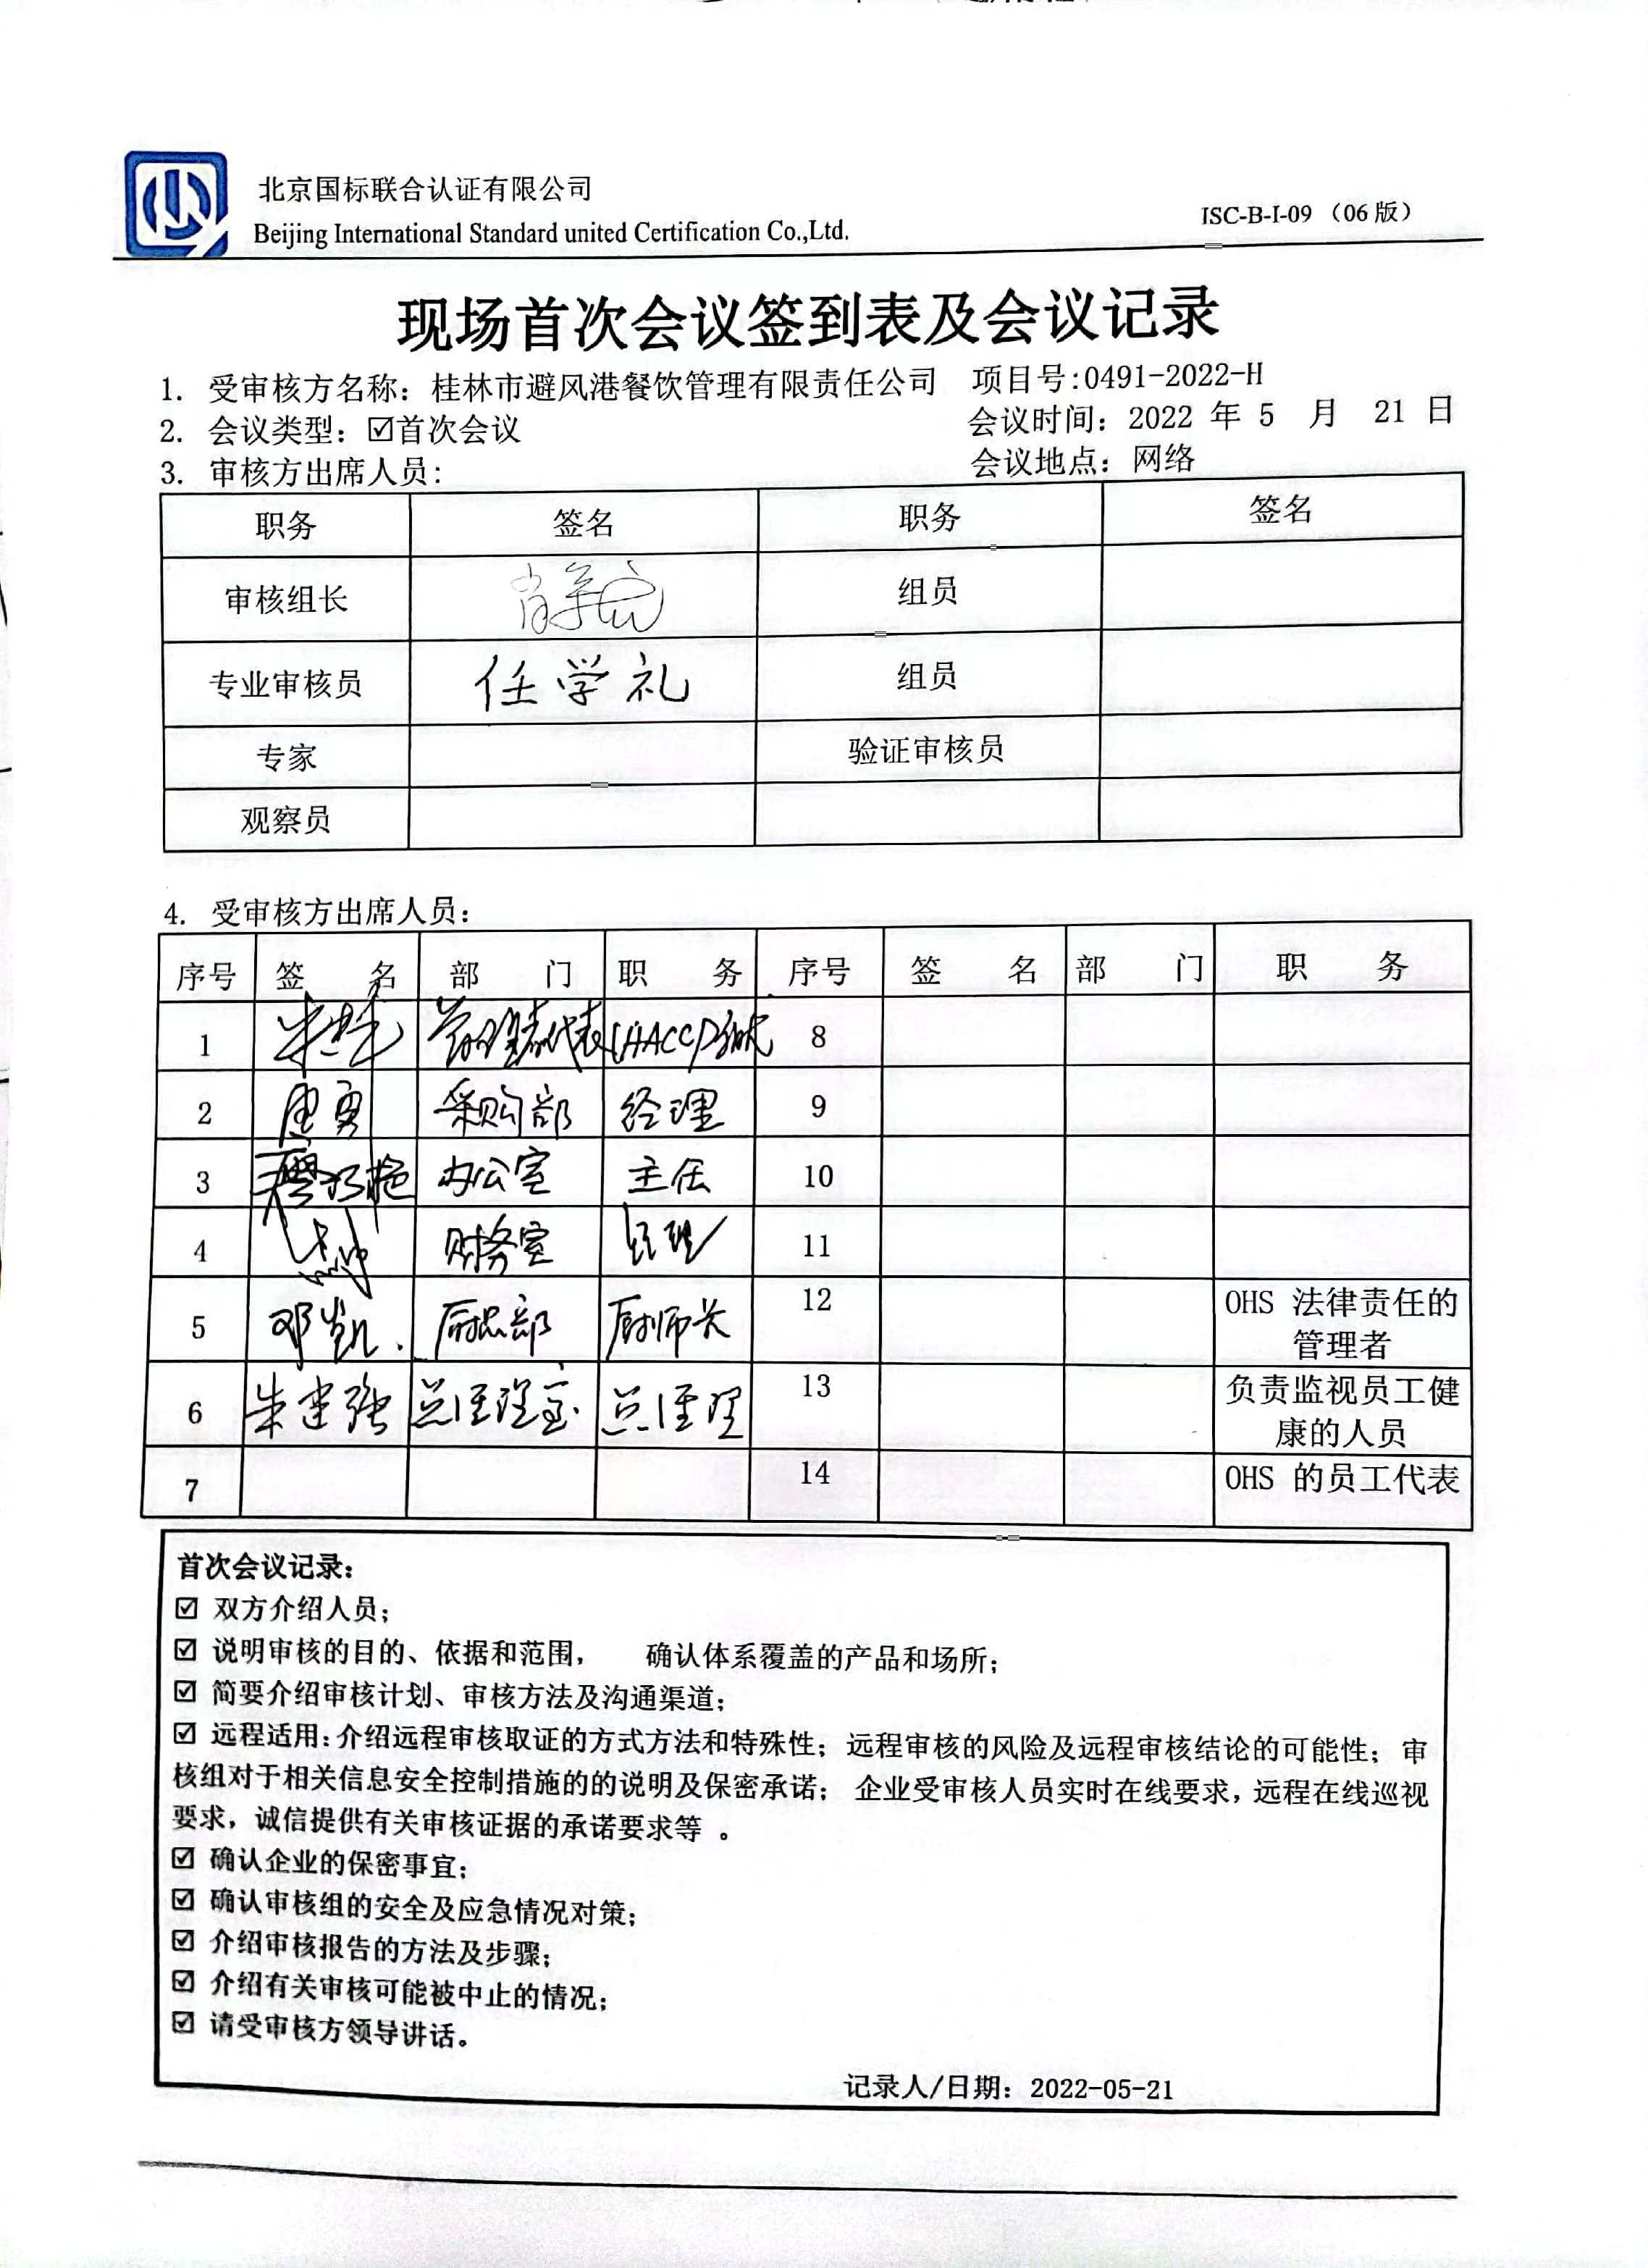 北京国标联合认证有限公司
Beijing International Standard united Certification Co.,Ltd.
ISC-B-I-09 （06 版）
现场首次会议签到表及会议记录
1. 受审核方名称：桂林市避风港餐饮管理有限责任公司 项目号:0491-2022-H
2. 会议类型：☑首次会议 会议时间：2022 年 5 月 21 日
3. 审核方出席人员: 会议地点：网络
职务 签名 职务 签名
审核组长 组员
专业审核员 任学礼 组员
专家 验证审核员
观察员
4. 受审核方出席人员：
序号 签 名 部 门 职 务 序号 签 名 部 门 职 务
1 8
2 唐勇 采购部 经理 9
3 办公室 主任 10
4 财务室 经理 11
5 邓凯 厨师长 12 OHS 法律责任的
管理者
6 朱建强 总经理室 总经理 13 负责监视员工健
康的人员
7 14 OHS 的员工代表
首次会议记录：
☑ 双方介绍人员；
☑ 说明审核的目的、依据和范围， 确认体系覆盖的产品和场所；
☑ 简要介绍审核计划、审核方法及沟通渠道；
☑ 远程适用：介绍远程审核取证的方式方法和特殊性；远程审核的风险及远程审核结论的可能性；审
核组对于相关信息安全控制措施的的说明及保密承诺； 企业受审核人员实时在线要求，远程在线巡视
要求，诚信提供有关审核证据的承诺要求等 。
☑ 确认企业的保密事宜；
☑ 确认审核组的安全及应急情况对策；
☑ 介绍审核报告的方法及步骤；
☑ 介绍有关审核可能被中止的情况；
☑ 请受审核方领导讲话。
记录人/日期：2022-05-21